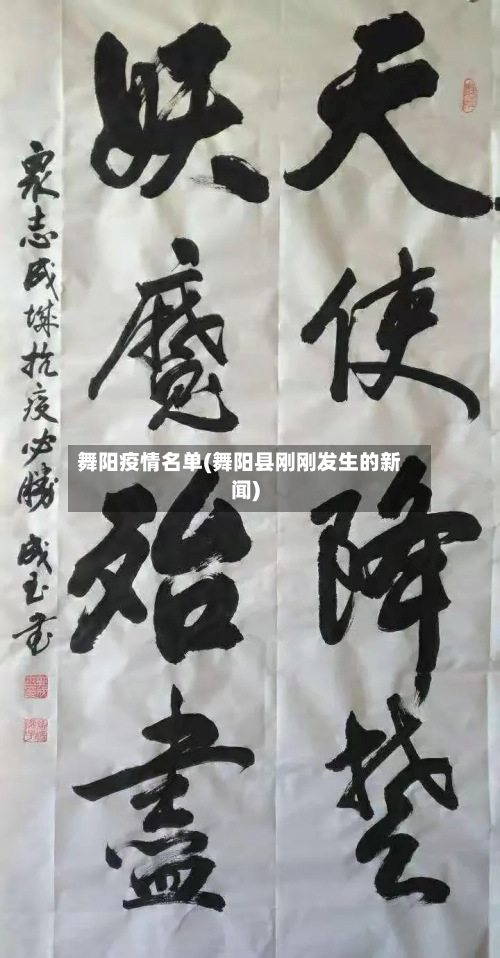 天使降楚
妖魔殆盡
眾志成城抗疫必勝 成玉書
舞阳疫情名单(舞阳县刚刚发生的新
闻)